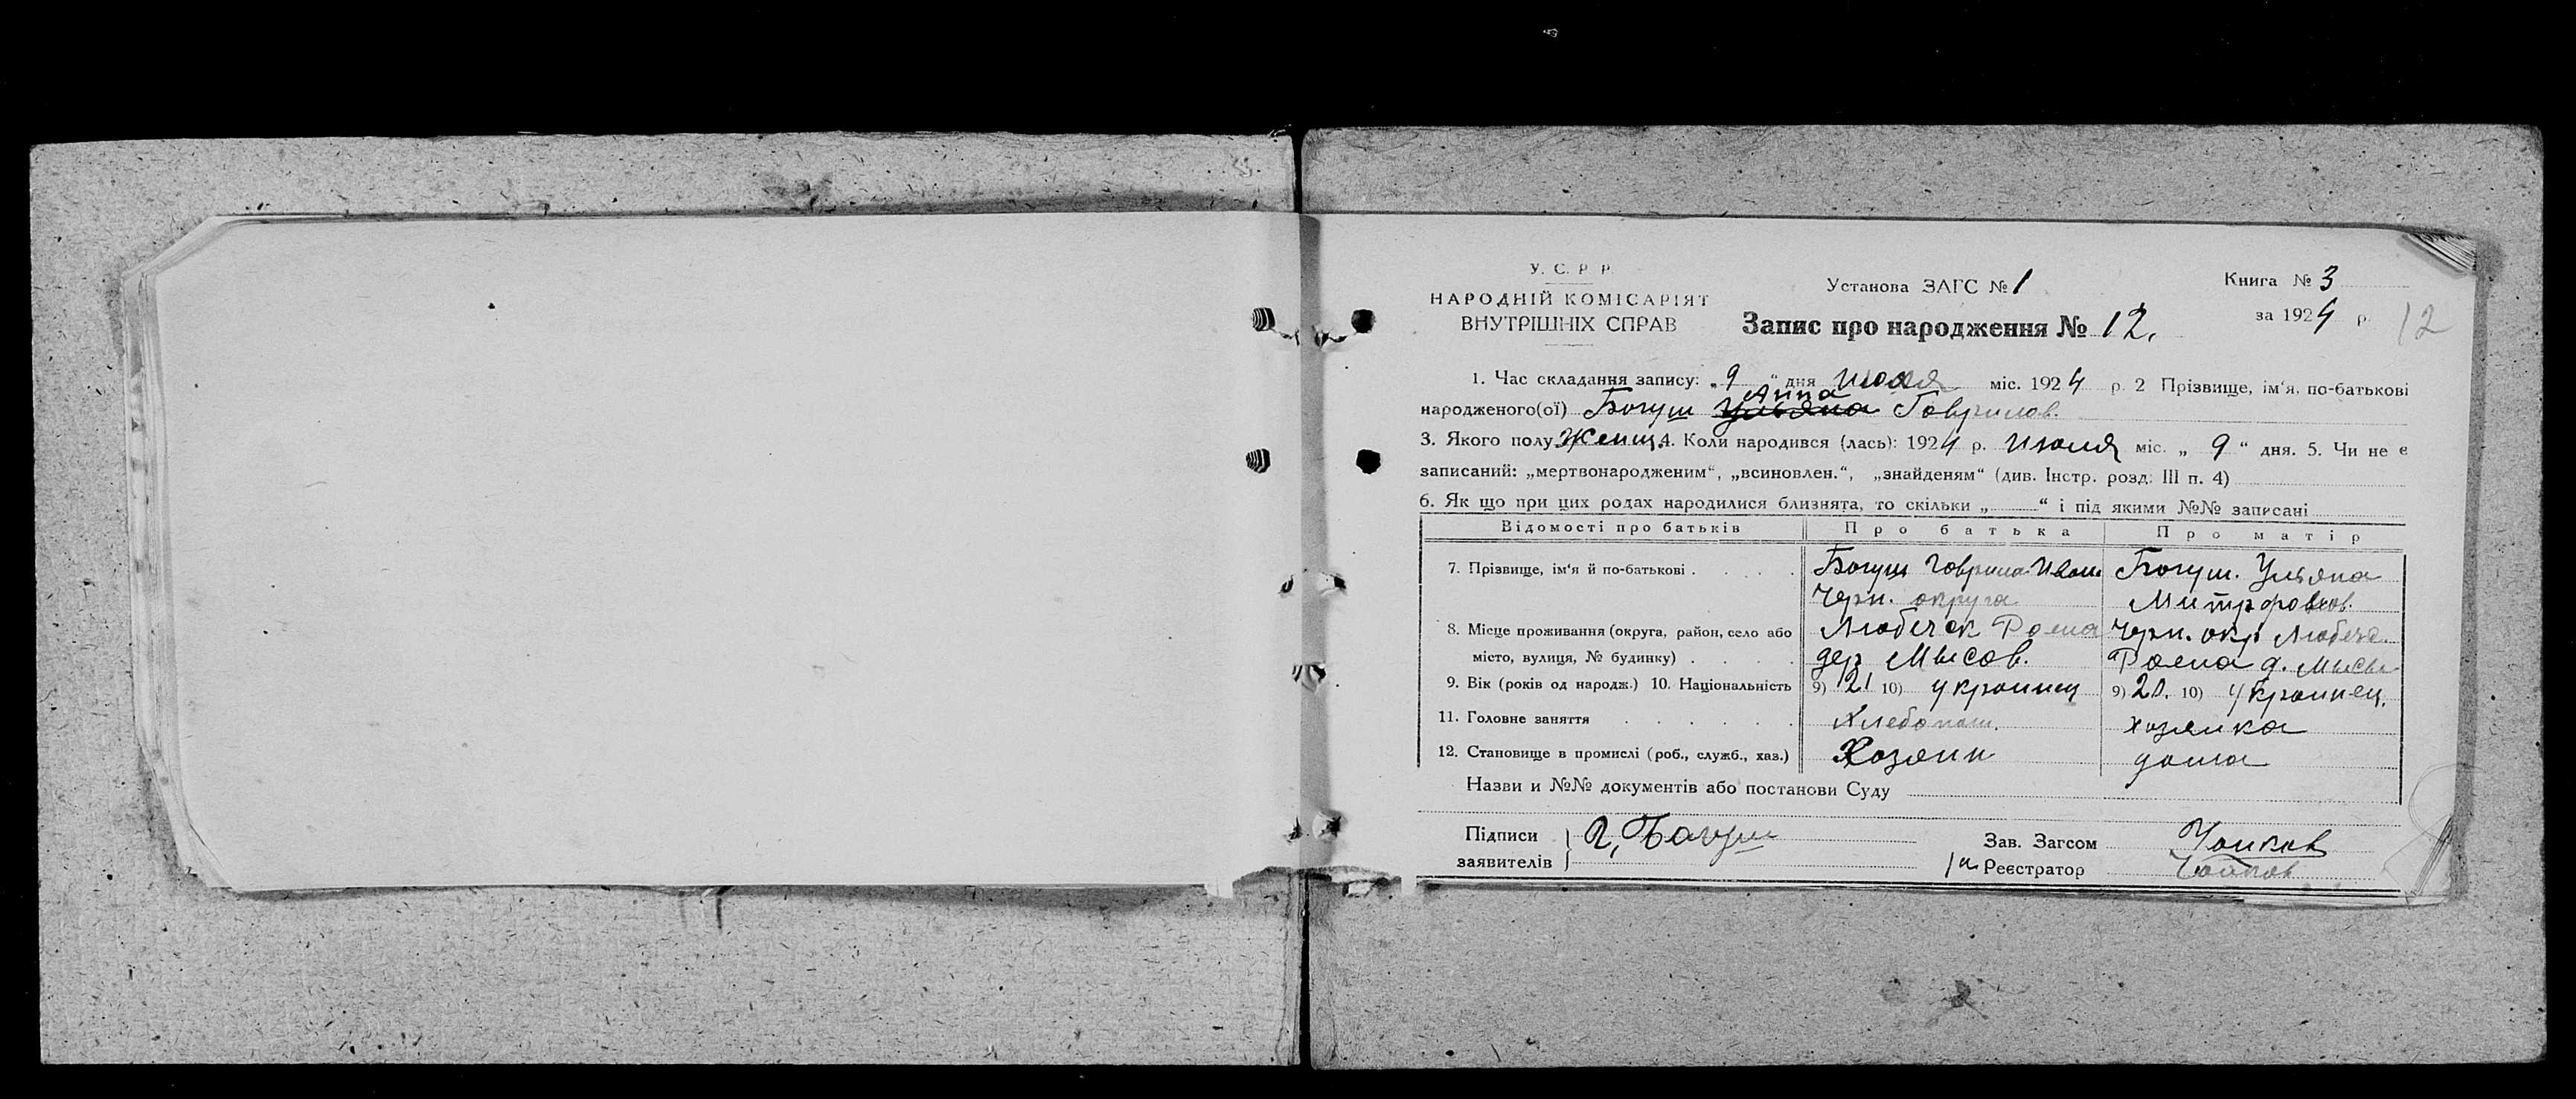 У. С. Р. Р.
НАРОДНІЙ КОМІСАРІЯТ
ВНУТРІШНІХ СПРАВ
Установа ЗАГС № 1
Запис про народження № 12.
Книга № 3
за 1924 р.
12
1. Час складання запису: „9“ дня июля міс. 1924 р. 2 Прізвище, ім'я, по-батькові
Анна
народженого(ої) Богуш Ульяна Гаврилов.
3. Якого полу Женщ. 4. Коли народився (лась): 1924 р. Июля міс. „ 9 “ дня. 5. Чи не є
записаний: „мертвонародженим“, „всиновлен.“, „знайденям“ (див. Інстр. розд: III п. 4)
6. Як що при цих родах народилися близнята, то скільки „ “ і під якими №№ записані
Відомості про батьків Про батька Про матір
7. Прізвище, ім'я й по-батькові . . . . . Богуш Гаврила Иван Богуш. Ульяна
Черн. округа Митрофанов.
8. Місце проживання (округа, район, село або Любечск Раена Черн. окр Любеч.
місто, вулиця, № будинку) . . . . дер Мысов. Раена д. Мысы
9. Вік (років од народж.) 10. Національність 9) 21 10) украинец 9) 20. 10) украинец.
11. Головне заняття . . . . . . Хлебопаш. хозяика
12. Становище в промислі (роб., служб., хаз.) Хозяин дома
Назви и №№ документів або постанови Суду
Підписи Г, Богуш Зав. Загсом
заявителів Реєстратор